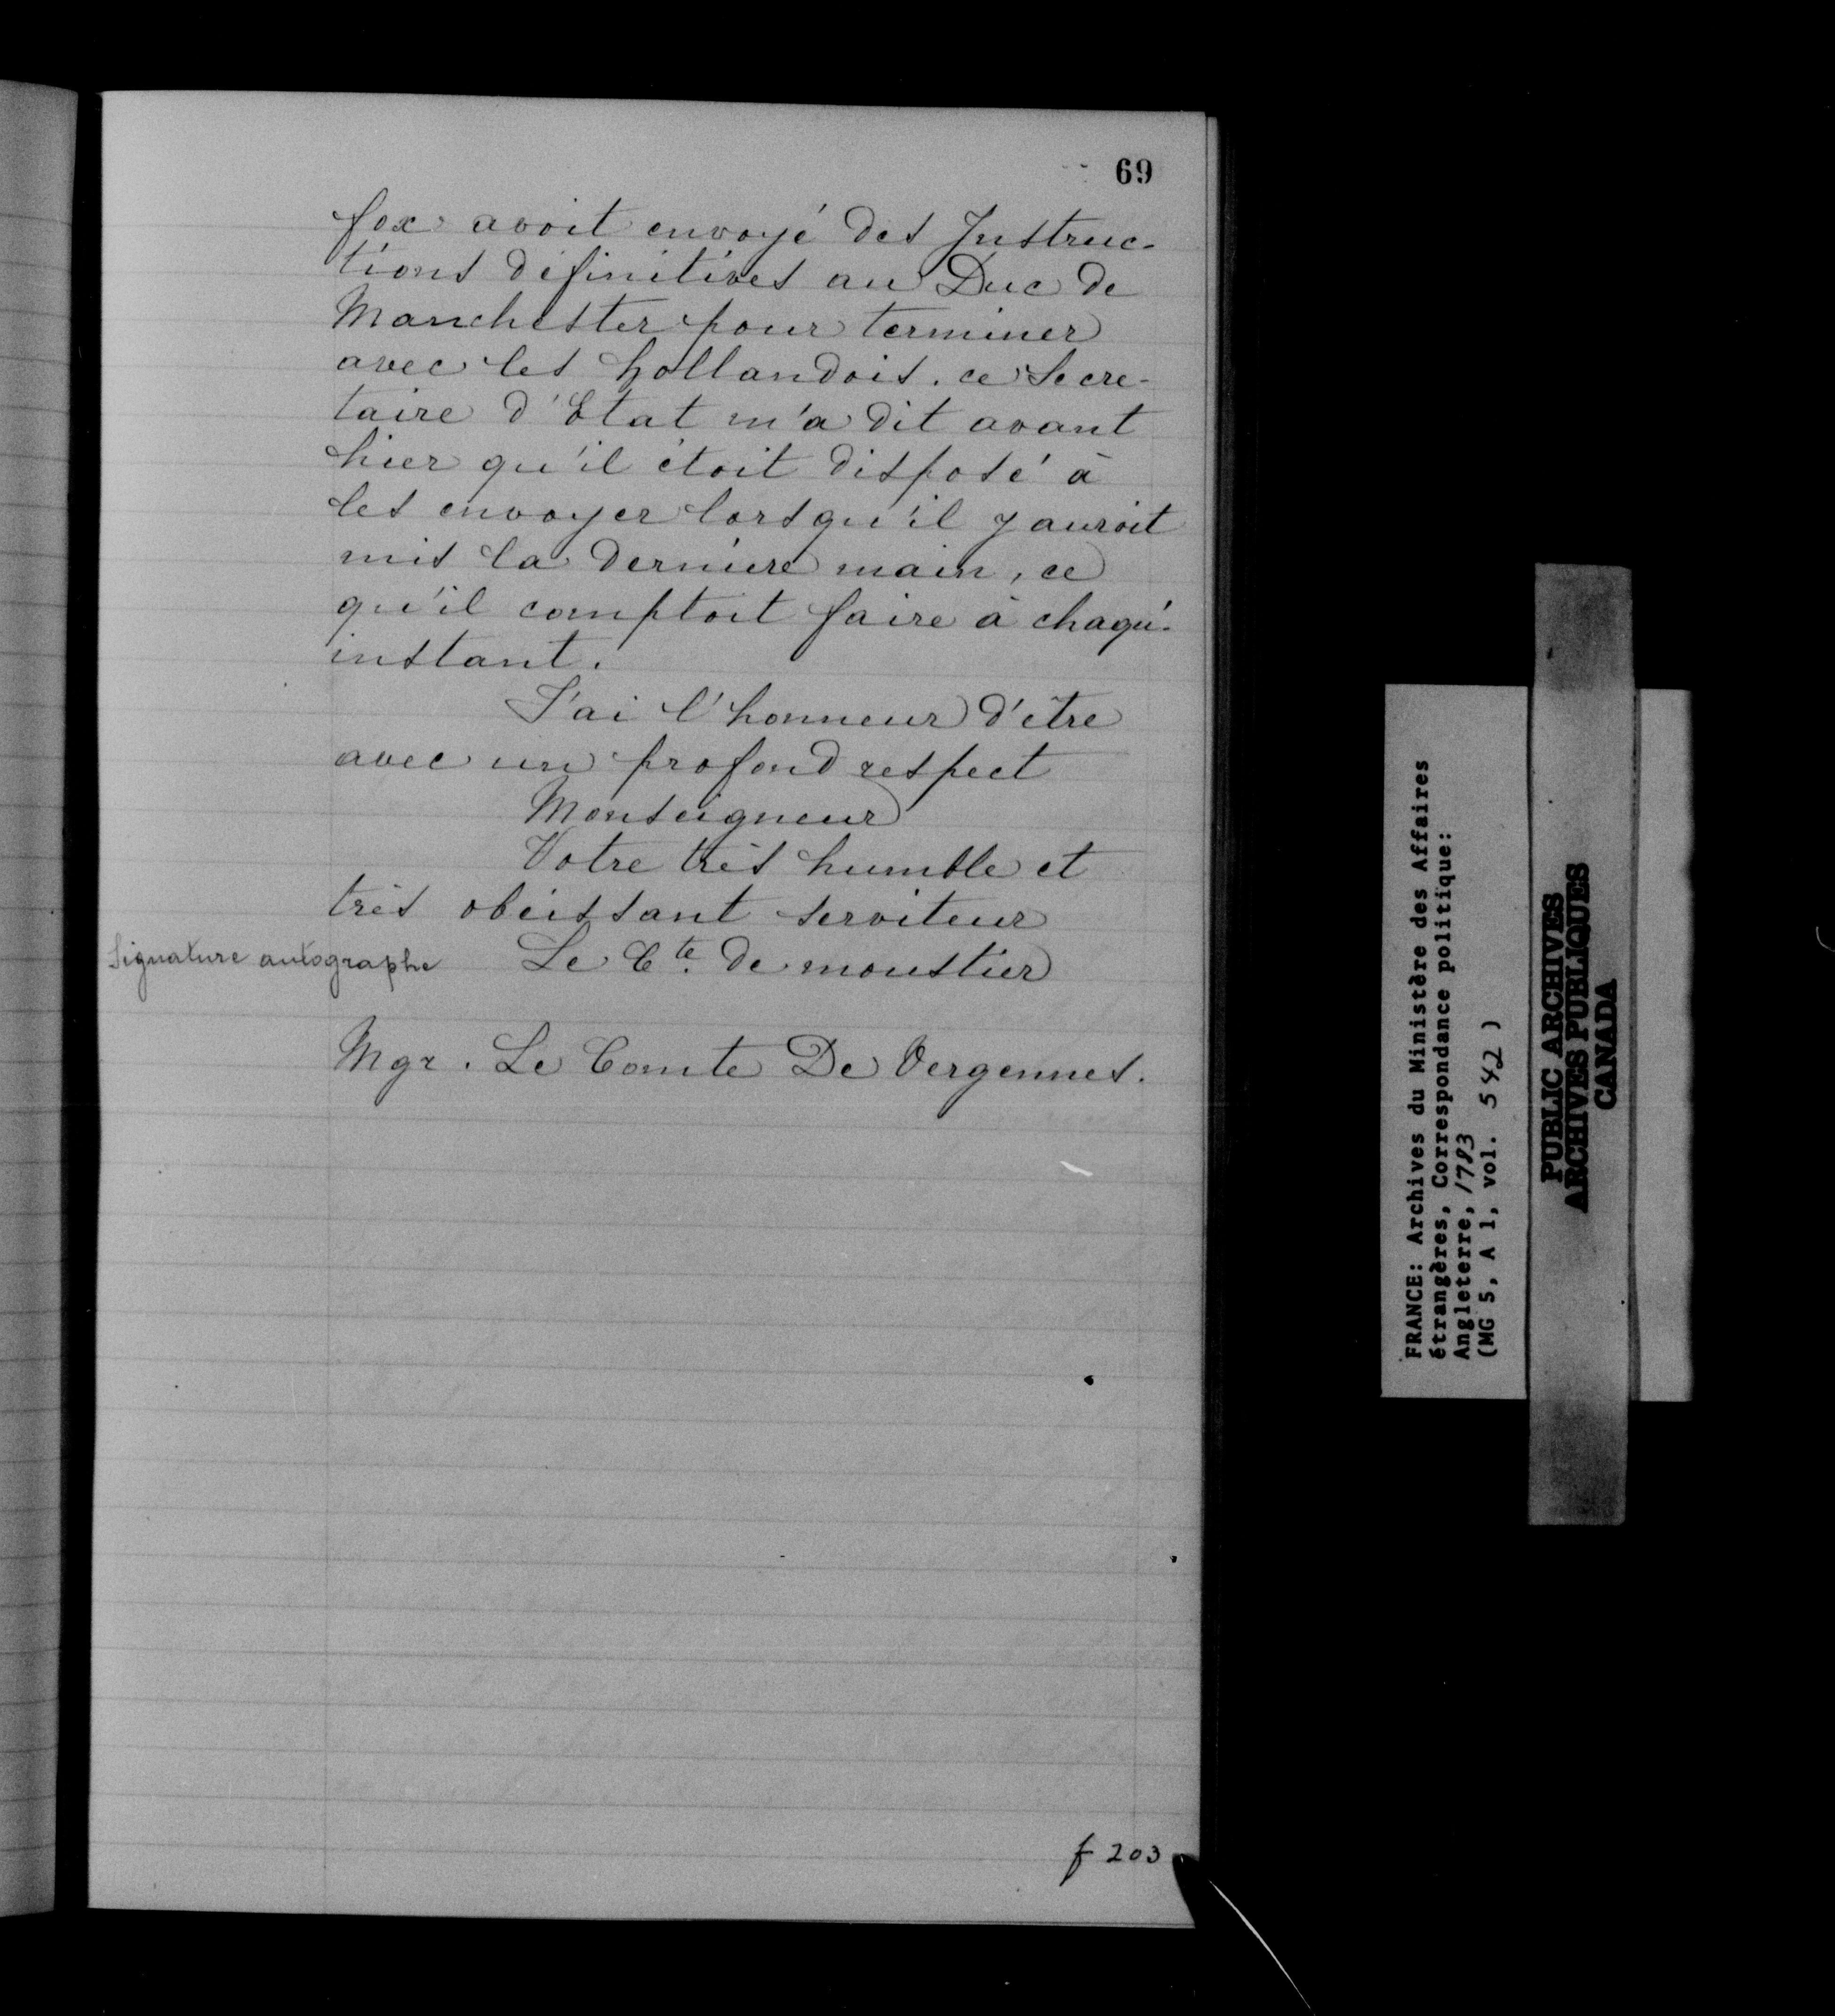 69
fox avoit envoyé des Instruc-
tions définitives au Duc de
Manchester pour terminer
avec les hollandois. ce Secre-
taire d'Etat m'a dit avant
hier qu'il étoit disposé à
les envoyer lorsqu'il y auroit
mis la derniere main, ce
qu'il comptoit faire à chaqu'-
instant.
J'ai l'honneur d'être
avec un profond respect
Monseigneur
Votre très humble et
très obéissant serviteur
Signature autographe Le Cte. de moustier
Mgr. Le Comte De Vergennes.
f 203
FRANCE: Archives du Ministère des Affaires
étrangères, Correspondance politique:
Angleterre, 1783
(MG 5, A 1, vol. 542)
PUBLIC ARCHIVES
ARCHIVES PUBLIQUES
CANADA